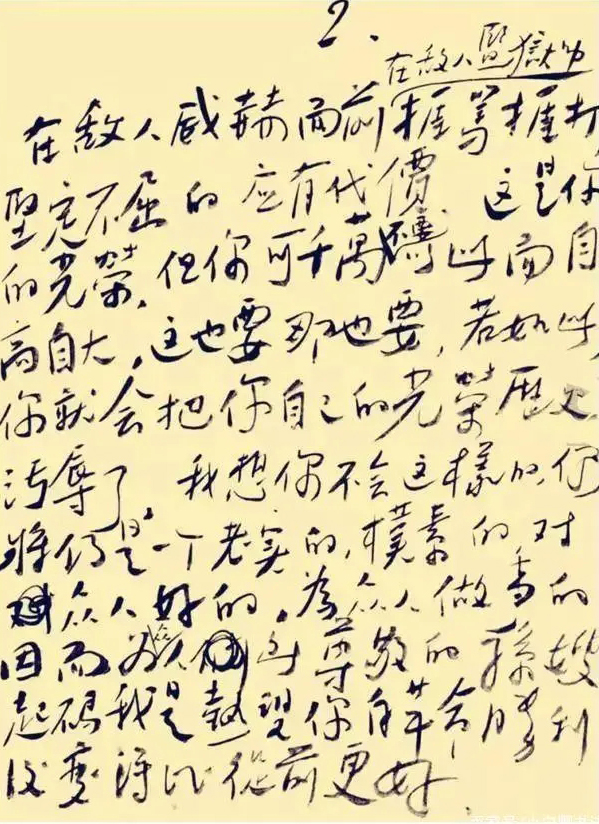 2.
在敌人監獄中
在敌人威赫面前握骂握打
堅定不屈的應有代價 这是你
的光榮，但你可千萬此而自
高自大，这也要那也要，若如此，
你就会把你自己的光榮歷史
污辱了，我想你不会这樣的，你
將仍是一个老实的，樸素的，对
众人好的，為众人做事的
因而为众人所尊敬的孫嫂
起码我是熱望你自革命勝利
後變得比從前更好